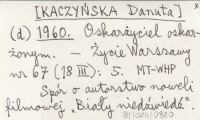 [KACZYŃSKA Danuta]
(d) 1960. Oskarżyciel oskar-
żonym. — Życie Warszawy
nr 67 (18 III): 5. MT-WHP
Spór o autorstwo noweli
filmowej „Biały niedźwiedź".